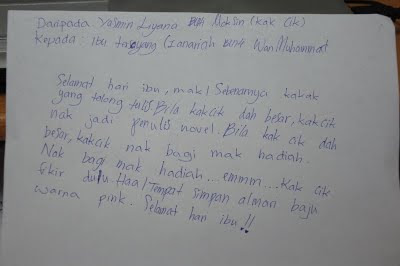 Daripada: Yasmin Liyana binti Mohsin (kak cik)
Kepada : ibu tersayang (Zanariah binti Wan Muhammat
Selamat hari ibu, mak! Sebenarnya kakak
yang tolong tulis. Bila kakcik dah besar, kakcik
nak jadi penulis novel. Bila kak cik dah
besar, kakcik nak bagi mak hadiah.
Nak bagi mak hadiah... emmm... kak cik
fikir dulu. Haa! Tempat simpan alman baju
warna pink. Selamat hari ibu!!